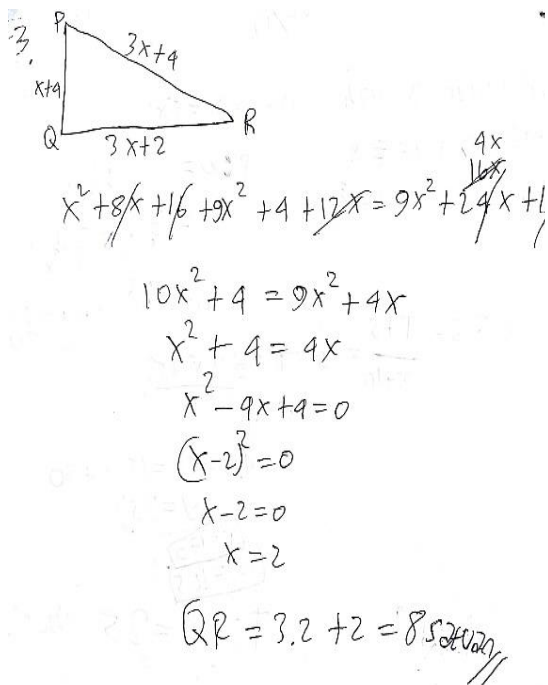 3.
P
3x+4
x+4
Q
R
3x+2
4x
16x
x² + 8x + 16 + 9x² + 4 + 12x = 9x² + 24x + 1
10x² + 4 = 9x² + 4x
x² + 4 = 4x
x² - 4x + 4 = 0
(x-2)² = 0
x-2 = 0
x = 2
QR = 3.2 + 2 = 8 satuan